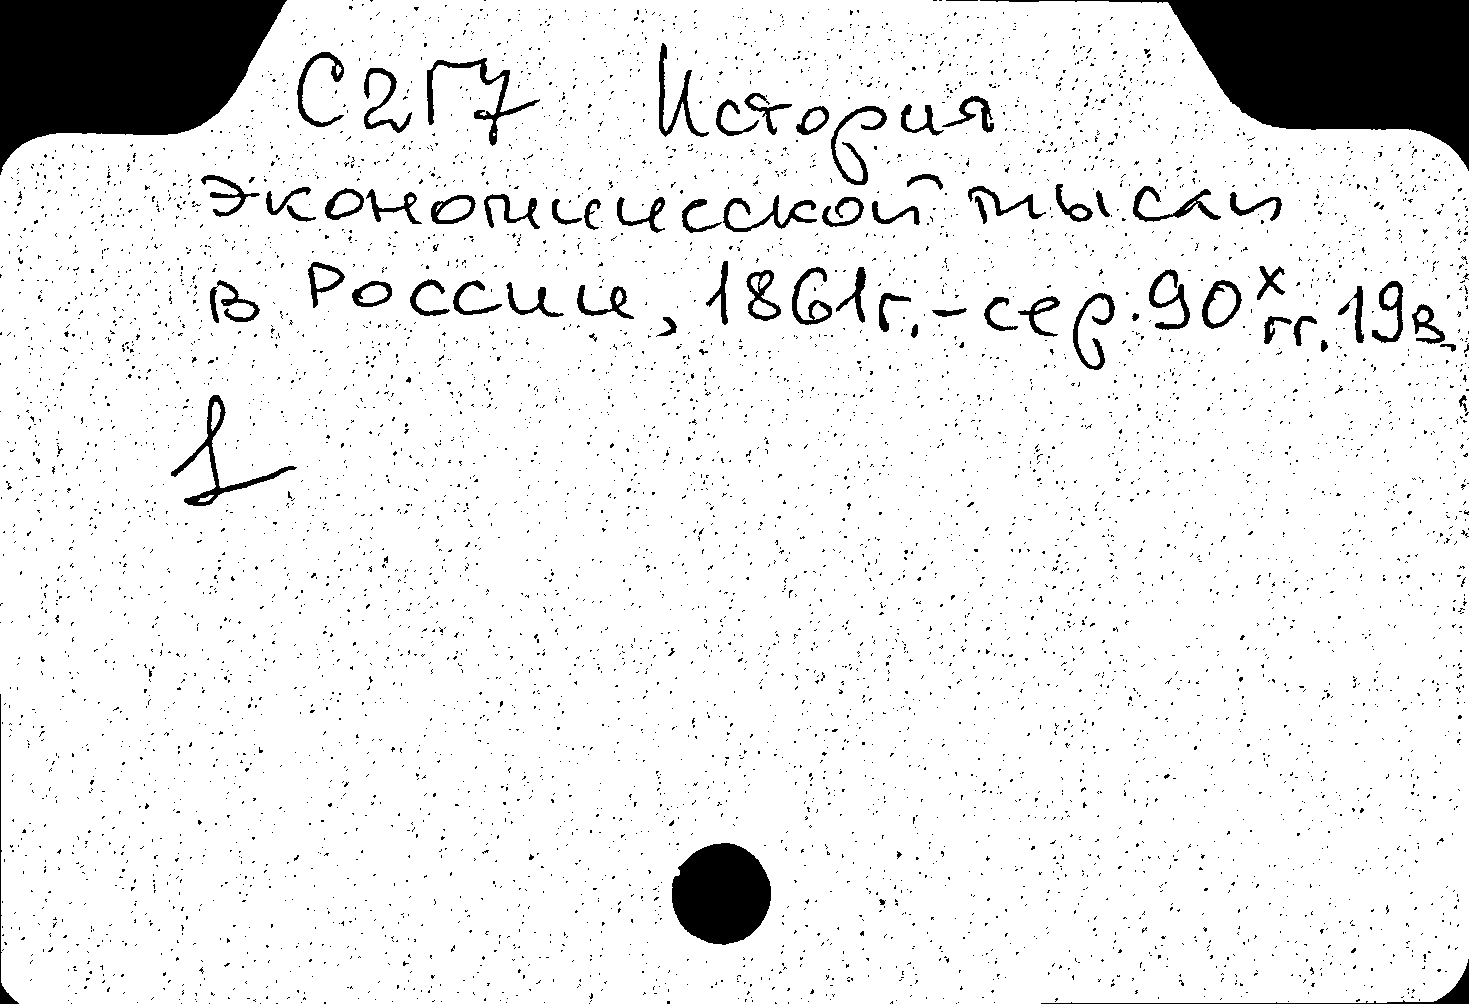 С2Г7 История
экономической мысли
в России, 1861г.-сер.90х гг. 19в.
1